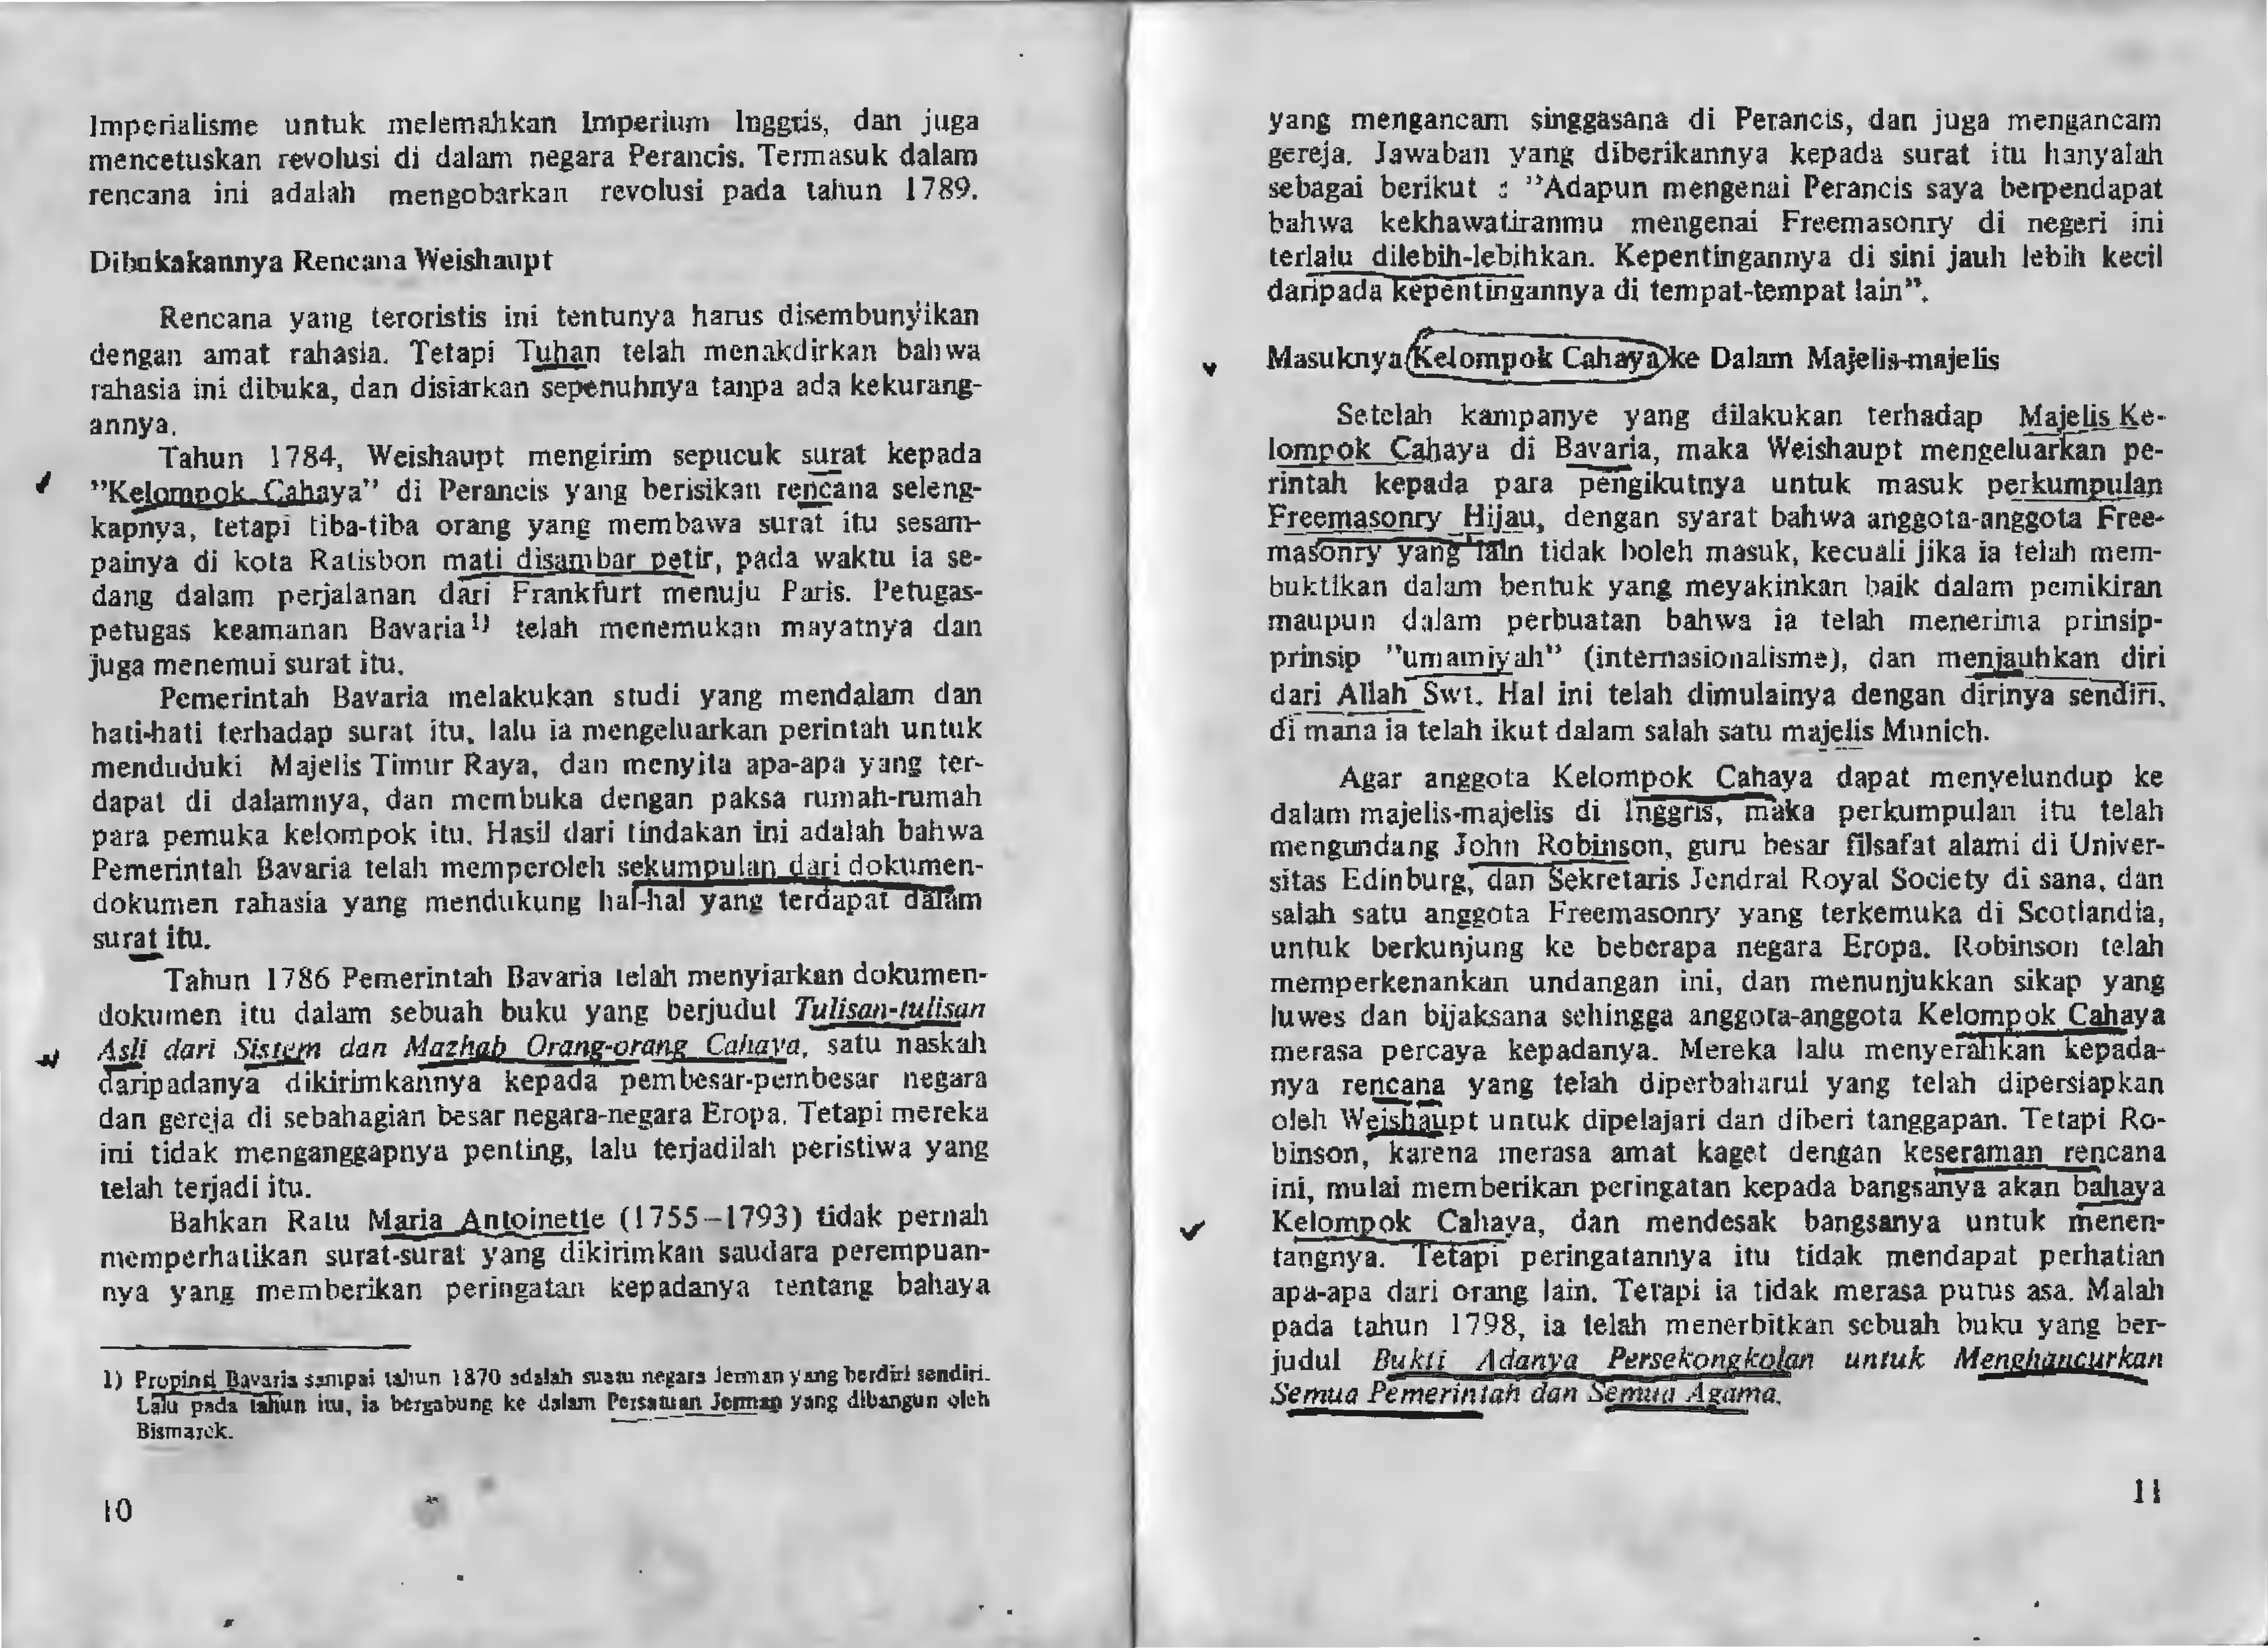 Imperialisme untuk melemahkan Imperium Inggris, dan juga
mencetuskan revolusi di dalam negara Perancis. Termasuk dalam
rencana ini adalah mengobarkan revolusi pada tahun 1789.
Dibukakannya Rencana Weishaupt
Rencana yang teroristis ini tentunya harus disembunyikan
dengan amat rahasia. Tetapi Tuhan telah menakdirkan bahwa
rahasia ini dibuka, dan disiarkan sepenuhnya tanpa ada kekurang-
annya.
Tahun 1784, Weishaupt mengirim sepucuk surat kepada
"Kelompok Cahaya" di Perancis yang berisikan rencana seleng-
kapnya, tetapi tiba-tiba orang yang membawa surat itu sesam-
painya di kota Ratisbon mati disambar petir, pada waktu ia se-
dang dalam perjalanan dari Frankfurt menuju Paris. Petugas-
petugas keamanan Bavaria1) telah menemukan mayatnya dan
juga menemui surat itu.
Pemerintah Bavaria melakukan studi yang mendalam dan
hati-hati terhadap surat itu, lalu ia mengeluarkan perintah untuk
menduduki Majelis Timur Raya, dan menyita apa-apa yang ter-
dapat di dalamnya, dan membuka dengan paksa rumah-rumah
para pemuka kelompok itu. Hasil dari tindakan ini adalah bahwa
Pemerintah Bavaria telah memperoleh sekumpulan dari dokumen-
dokumen rahasia yang mendukung hal-hal yang terdapat dalam
surat itu.
Tahun 1786 Pemerintah Bavaria telah menyiarkan dokumen-
dokumen itu dalam sebuah buku yang berjudul Tulisan-tulisan
Asli dari Sistem dan Mazhab Orang-orang Cahaya, satu naskah
daripadanya dikirimkannya kepada pembesar-pembesar negara
dan gereja di sebahagian besar negara-negara Eropa. Tetapi mereka
ini tidak menganggapnya penting, lalu terjadilah peristiwa yang
telah terjadi itu.
Bahkan Ratu Maria Antoinette (1755-1793) tidak pernah
memperhatikan surat-surat yang dikirimkan saudara perempuan-
nya yang memberikan peringatan kepadanya tentang bahaya
1) Propinsi Bavaria sampai tahun 1870 adalah suatu negara Jerman yang berdiri sendiri.
Lalu pada tahun itu, ia bergabung ke dalam Persatuan Jerman yang dibangun oleh
Bismarck.
10
yang mengancam singgasana di Perancis, dan juga mengancam
gereja. Jawaban yang diberikannya kepada surat itu hanyalah
sebagai berikut : "Adapun mengenai Perancis saya berpendapat
bahwa kekhawatiranmu mengenai Freemasonry di negeri ini
terlalu dilebih-lebihkan. Kepentingannya di sini jauh lebih kecil
daripada kepentingannya di tempat-tempat lain".
Masuknya Kelompok Cahaya ke Dalam Majelis-majelis
Setelah kampanye yang dilakukan terhadap Majelis Ke-
lompok Cahaya di Bavaria, maka Weishaupt mengeluarkan pe-
rintah kepada para pengikutnya untuk masuk perkumpulan
Freemasonry Hijau, dengan syarat bahwa anggota-anggota Free-
masonry yang lain tidak boleh masuk, kecuali jika ia telah mem-
buktikan dalam bentuk yang meyakinkan baik dalam pemikiran
maupun dalam perbuatan bahwa ia telah menerima prinsip-
prinsip "umamiyah" (internasionalisme), dan menjauhkan diri
dari Allah Swt. Hal ini telah dimulainya dengan dirinya sendiri,
di mana ia telah ikut dalam salah satu majelis Munich.
Agar anggota Kelompok Cahaya dapat menyelundup ke
dalam majelis-majelis di Inggris, maka perkumpulan itu telah
mengundang John Robinson, guru besar filsafat alami di Univer-
sitas Edinburg, dan Sekretaris Jendral Royal Society di sana, dan
salah satu anggota Freemasonry yang terkemuka di Scotlandia,
untuk berkunjung ke beberapa negara Eropa. Robinson telah
memperkenankan undangan ini, dan menunjukkan sikap yang
luwes dan bijaksana sehingga anggota-anggota Kelompok Cahaya
merasa percaya kepadanya. Mereka lalu menyerahkan kepada-
nya rencana yang telah diperbaharui yang telah dipersiapkan
oleh Weishaupt untuk dipelajari dan diberi tanggapan. Tetapi Ro-
binson, karena merasa amat kaget dengan keseraman rencana
ini, mulai memberikan peringatan kepada bangsanya akan bahaya
Kelompok Cahaya, dan mendesak bangsanya untuk menen-
tangnya. Tetapi peringatannya itu tidak mendapat perhatian
apa-apa dari orang lain. Tetapi ia tidak merasa putus asa. Malah
pada tahun 1798, ia telah menerbitkan sebuah buku yang ber-
judul Bukti Adanya Persekongkolan untuk Menghancurkan
Semua Pemerintah dan Semua Agama.
11